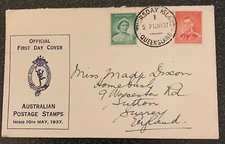 OFFICIAL
FIRST DAY COVER
AUSTRALIAN
POSTAGE STAMPS
ISSUED 10TH MAY, 1937.
THURSDAY ISLAND
QUEENSLAND
Miss Madge Dixon
Homebush
9 Worcester Rd
Sutton
Surrey
England.